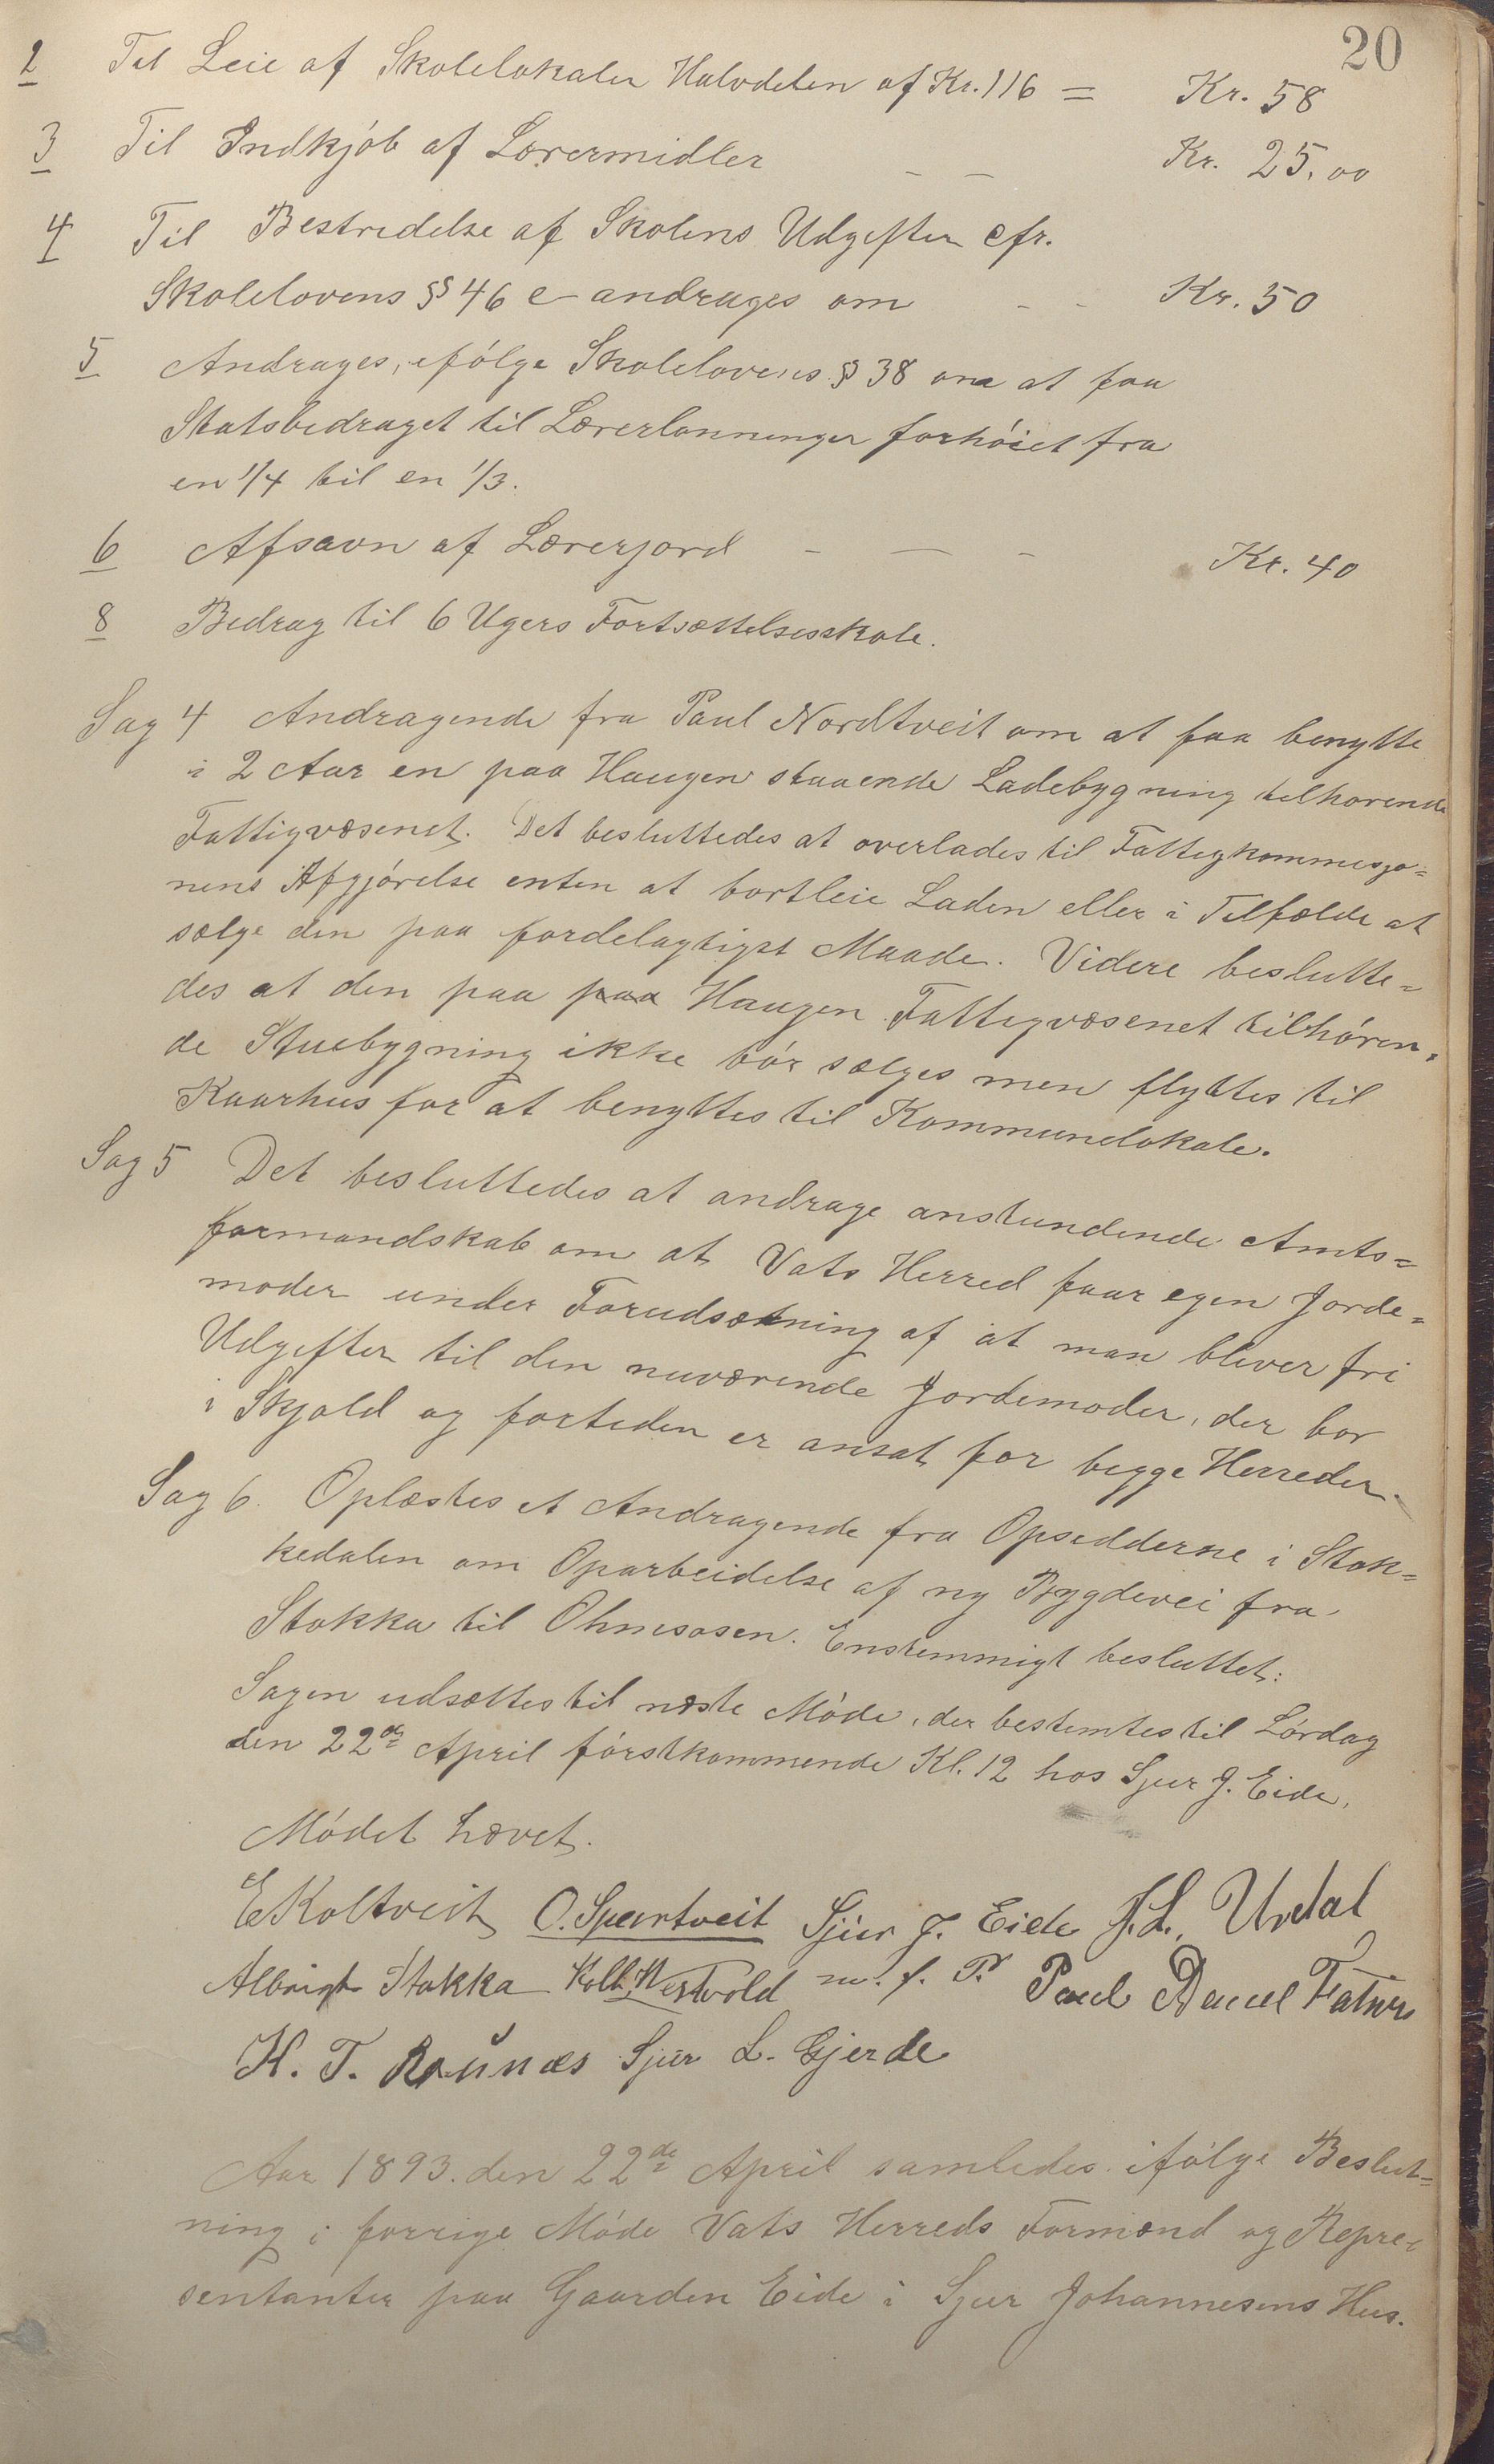 20
2 Til Leie af Skolelokaler Halvdelen af Kr. 116 = Kr. 58
3 Til Indkjøb af Lærermidler — — Kr. 25,00
4 Til Bestridelse af Skolens Udgifter cfr.
Skolelovens §§ 46 e andrages om - - Kr. 50
5 Andrages, ifølge Skolelovens § 38 om at faa
Statsbidraget til Lærerlønninger forhøiet fra
en 1/4 til en 1/3.
6 Afsavn af Lærerjord - — - Kr. 40
8 Bidrag til 6 Ugers Fortsættelsesskole.
Sag 4 Andragende fra Paul Nordtveit om at faa benytte
i 2 Aar en paa Haugen staaende Ladebygning tilhørende
Fattigvæsenet. Det besluttedes at overlades til Fattigkommisjo=
nens Afgjørelse enten at bortleie Laden eller i Tilfælde at
sælge den paa fordelagtigst Maade. Videre beslutte=
des at den paa paa Haugen Fattigvæsenet tilhøren=
de Stuebygning ikke bør sælges men flyttes til
Kaarhus for at benyttes til Kommunelokale.
Sag 5 Det besluttedes at andrage anstundende Amts=
formandskab om at Vats Herred faar egen Jorde=
moder under Forudsætning af at man bliver fri
Udgifter til den nuværende Jordemoder, der bor
i Skjold og fortiden er ansat for begge Herreder.
Sag 6. Oplæstes et Andragende fra Opsidderne i Stok=
kedalen om Oparbeidelse af ny Bygdevei fra
Stokka til Ohmsosen. Enstemmigt besluttet:
Sagen udsættes til næste Møde, der bestemtes til Lørdag
den 22de April førstkommende Kl. 12 hos Sjur J. Eide.
Mødet hævet.
E Koltveit O. Spaurtveit Sjur J. Eide J. L. Urdal
Albrigt Stokka Kolb. Westvold m. f. P. Paul Fatnes
K. T. Raunæs Sjur L. Gjerde
Aar 1893. den 22de April samledes ifølge Beslut=
ning i forrige Møde Vats Herreds Formænd og Repre=
sentanter paa Gaarden Eide i Sjur Johannesens Hus.